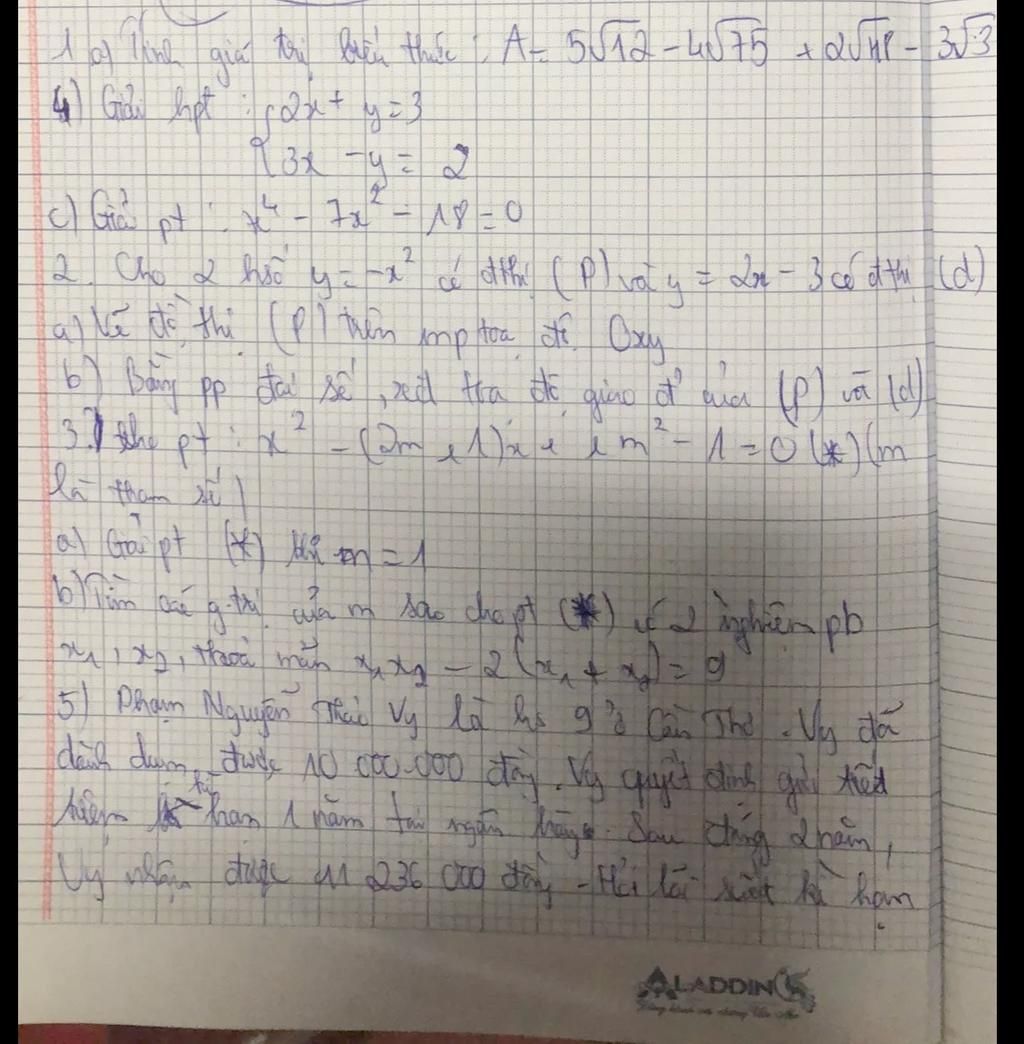 1 a) Tính giá trị biểu thức : A = 5√12 - 4√75 + 2√48 - 3√3
4) Giải hpt : { 2x + y = 3
{ 3x - y = 2
c) Giải pt : x⁴ - 7x² - 18 = 0
2. Cho 2 hsố y = -x² có đthị (P) và y = 2x - 3 có đthị (d)
a) Vẽ đồ thị (P) trên mp toạ độ Oxy
b) Bằng pp đại số, xđ tọa độ giao đ' của (P) và (d)
3.) cho pt : x² - (2m + 1)x + m² - 1 = 0 (*) (m
là tham số)
a) Giải pt (*) khi m = 1
b) Tìm các g.trị của m sao cho pt (*) có 2 nghiệm pb
x₁, x₂, thoả mãn x₁x₂ - 2(x₁ + x₂) = 9
5) Phạm Nguyễn Thái Vy là hs 9 ở Cần Thơ. Vy đã
dành dụm được 10 000.000 đồng. Vy quyết định gửi tiết
kiệm kì hạn 1 năm tại ngân hàng. Sau đúng 2 năm,
Vy nhận được 11 236 000 đồng - Hỏi lãi suất kì hạn
ALADDIN